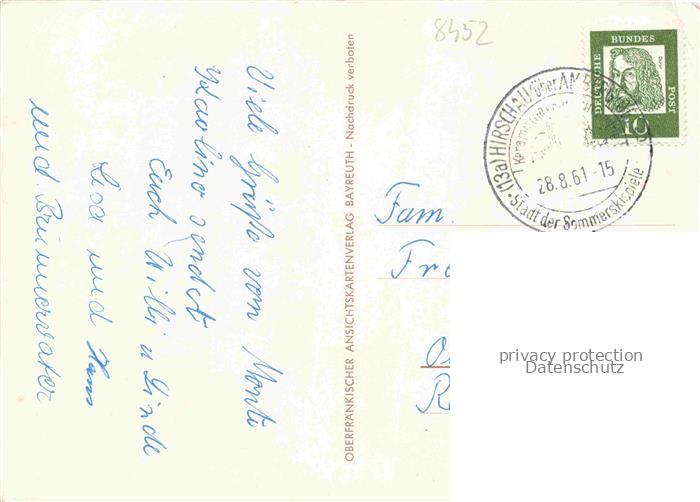 Viele Grüße vom Monte
Kaolino sendet
Euch Willi u Linde
Lisa und Hans
und
8452
OBERFRÄNKISCHER ANSICHTSKARTENVERLAG BAYREUTH - Nachdruck verboten
DEUTSCHE BUNDES POST
Dürer
10
(13a) HIRSCHAU über AMBERG
28.8.61-15
Stadt der Sommerskispiele
Fam.
Fr
privacy protection
Datenschutz